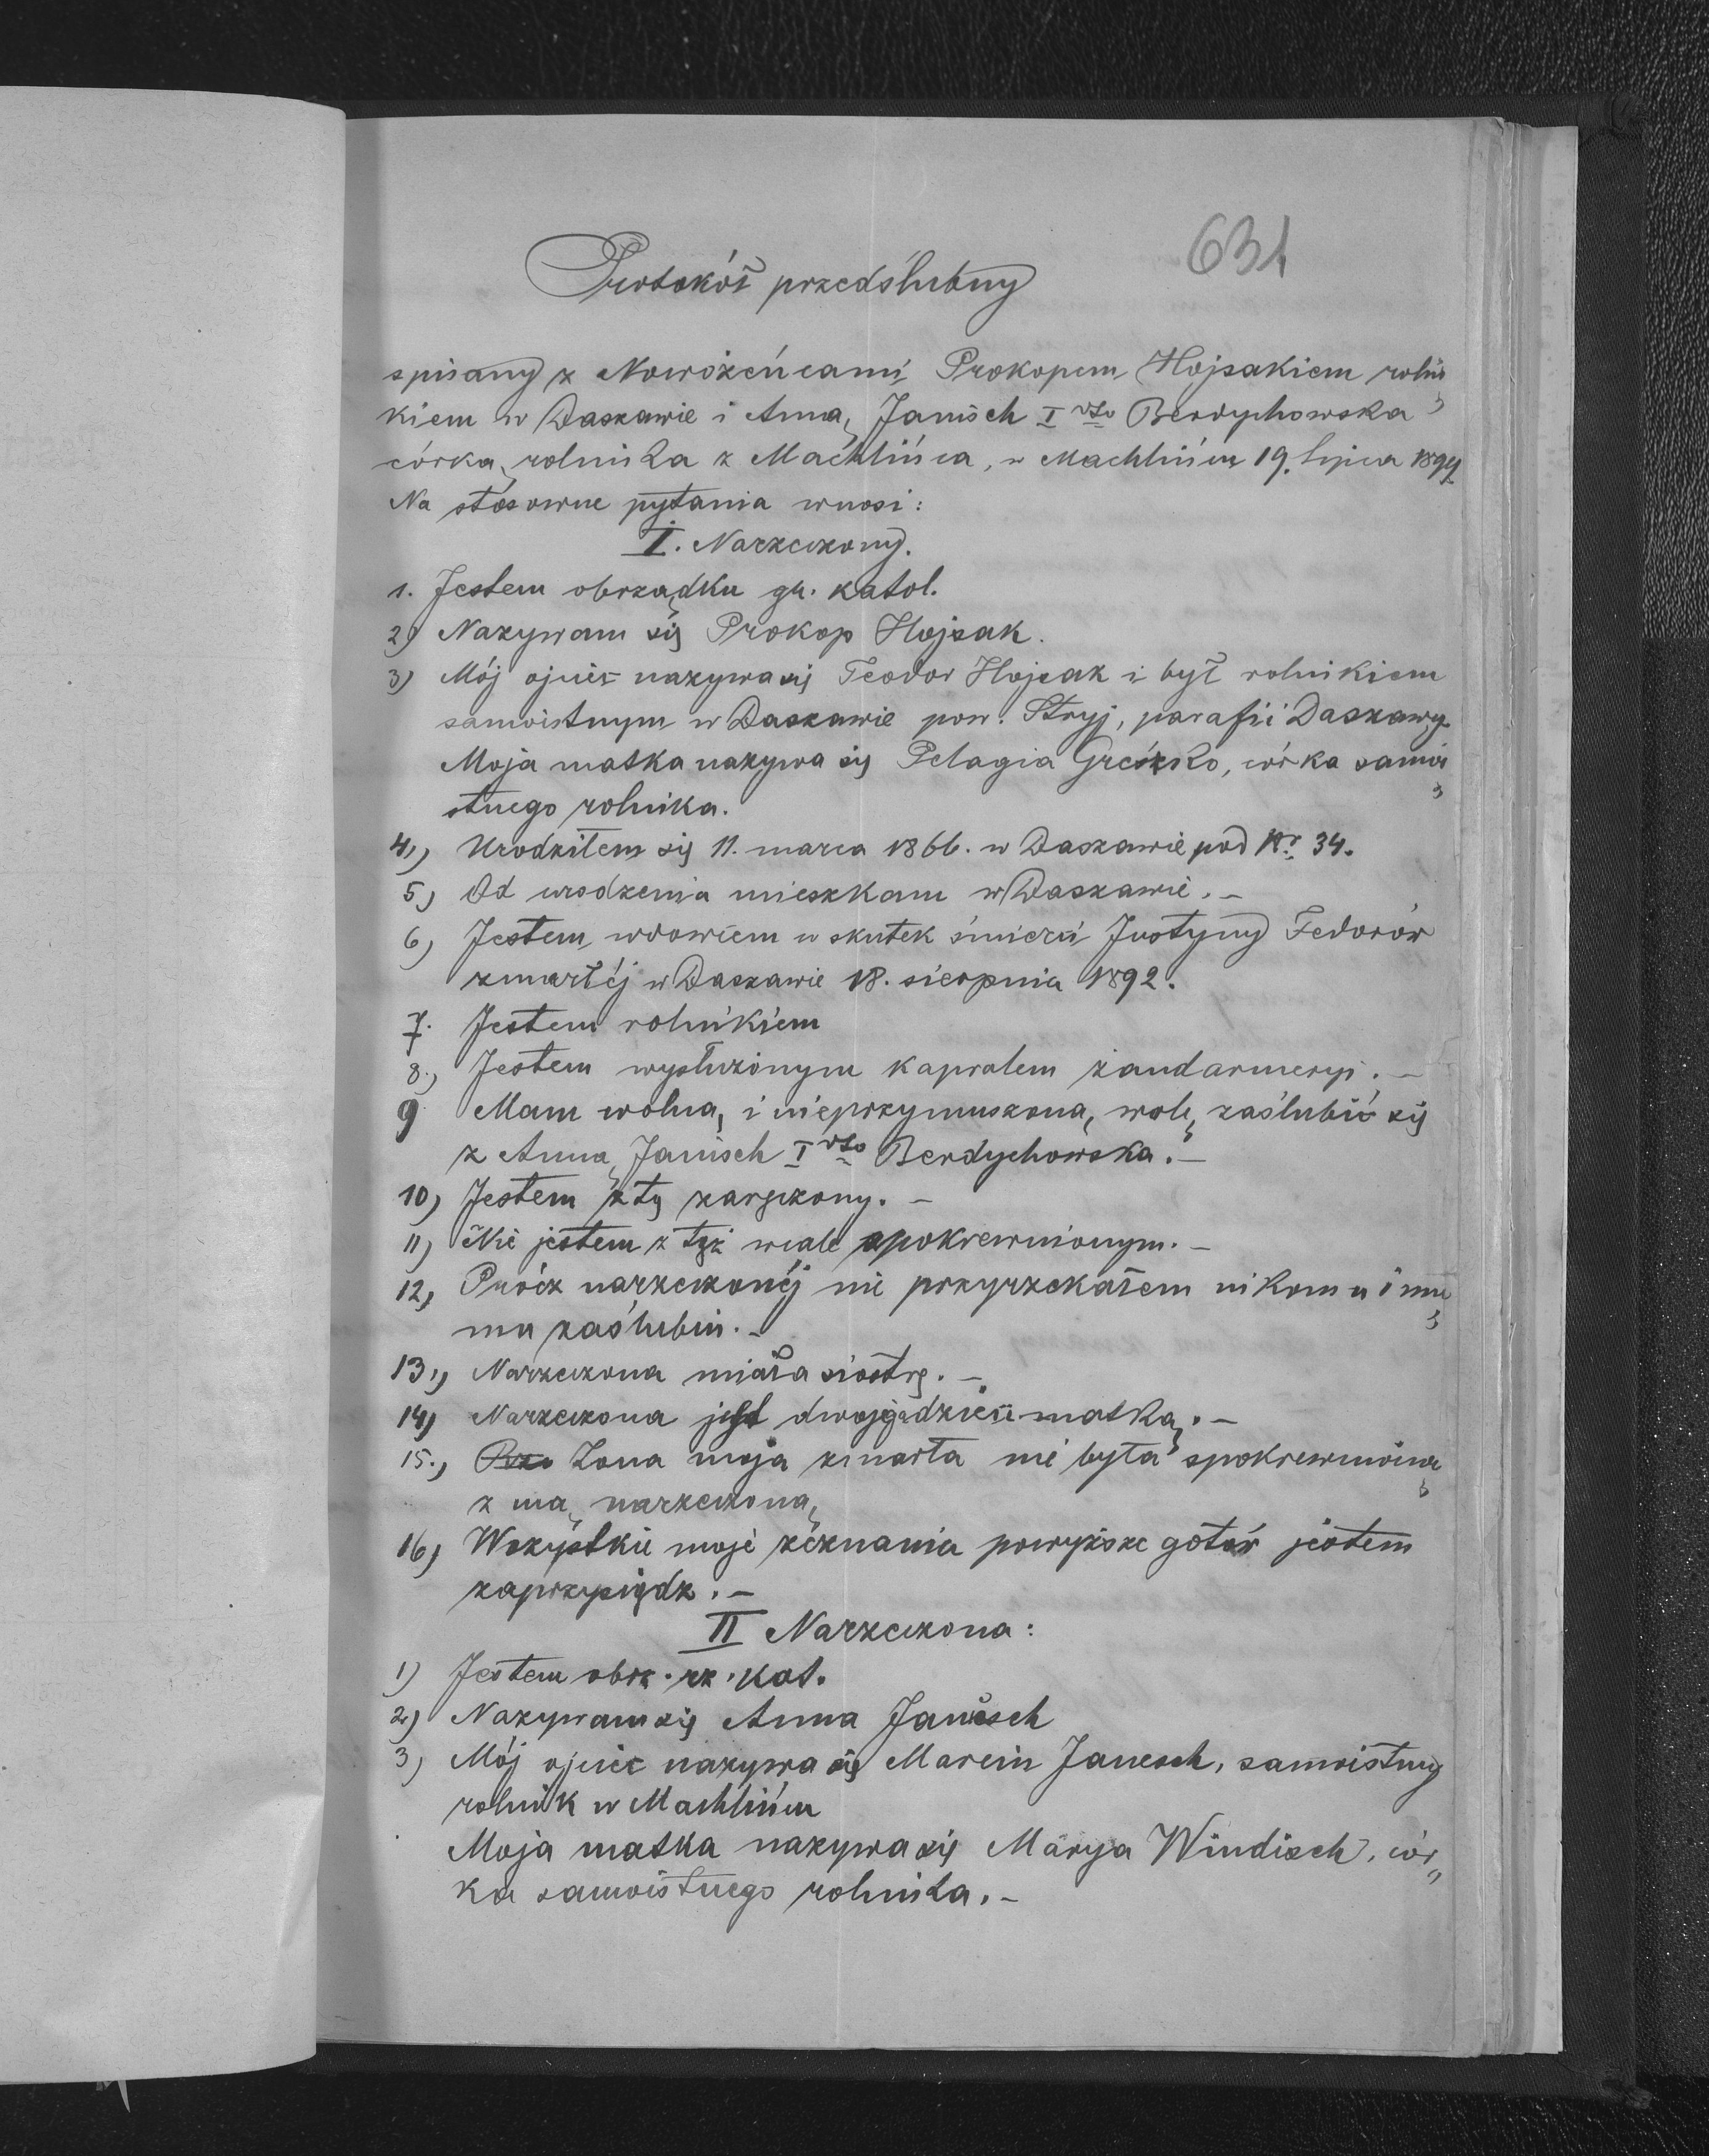 631
Protokół przedślubny
spisany z Nowożeńcami Prokopem Hojsakiem rolni
kiem w Daszawie i Anną Janisch I vto Berdychowska
córką rolnika z Machlińca, w Machlińcu 19. lipca 1894
Na stósowne pytania wnosi:
I. Narzeczony.
1. Jestem obrządku gr. katol.
2) Nazywam się Prokop Hojsak.
3) Mój ojciec nazywa się Teodor Hojsak i był rolnikiem
samoistnym w Daszawie pow. Stryj, parafii Daszawy.
Moja matka nazywa się Pelagia Greśzko, córka samoi
stnego rolnika.
4,) Urodziłem się 11. marca 1866. w Daszawie pod Nr. 34.
5) Od urodzenia mieszkam w Daszawie. –
6) Jestem wdowcem w skutek śmierci Justyny Fedorów
zmarłéj w Daszawie 18. sierpnia 1892.
7. Jestem rolnikiem
8.) Jestem wysłużonym kapralem żandarmeryi. –
9 Mam wolną i nieprzymuszoną wolę zaślubić się
z Anną Janisch I vto Berdychowska. –
10) Jestem z tą zaręczony. –
11) Nie jestem z tąż wcale spokrewnionym. –
12) Prócz narzeczonéj nie przyrzekałem nikomu inne
mu zaślubin. –
13,) Narzeczona miała siostrę. –
14) Narzeczona jest dwojga dzieci matką. –
15.) Żona moja zmarła nie była spokrewniona
z mą narzeczoną
16) Wszystkie moje zeznania powyższe gotów jestem
zaprzysiądz. –
II Narzeczona:
1) Jestem obrz. rz. kat.
2) Nazywam się Anna Janisch
3) Mój ojciec nazywa się Marcin Janesch, samoistny
rolnik w Machlińcu
Moja matka nazywa się Marya Windisch, cór„
ka samoistnego rolnika. –